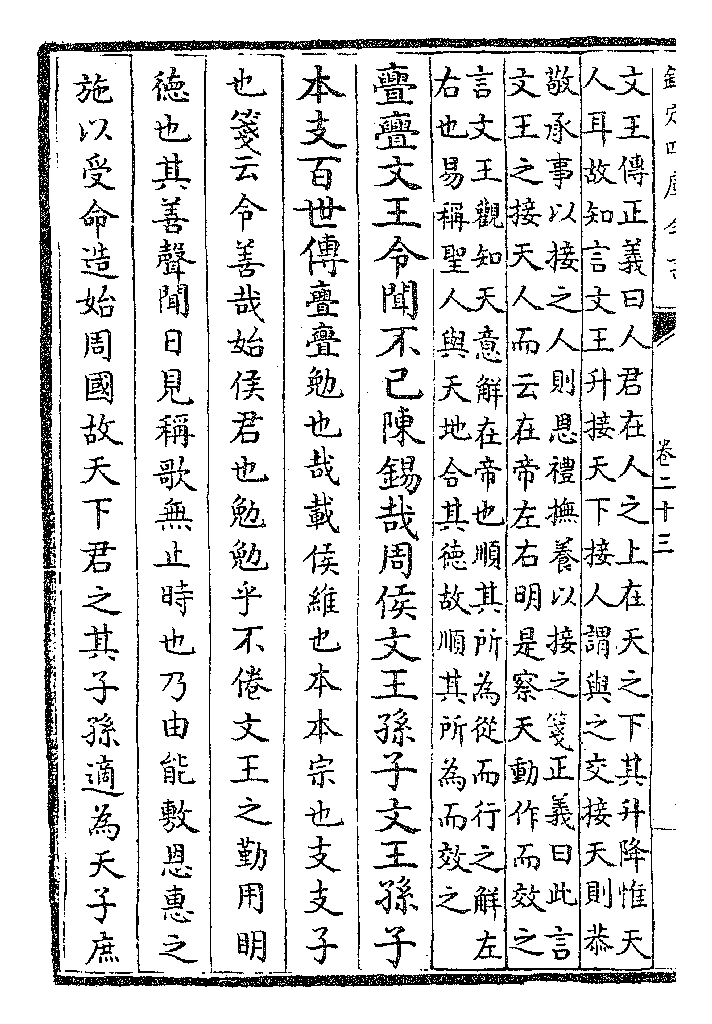 欽定四庫全書
卷二十三
文王傳正義曰人君在人之上在天之下其升降惟天
人耳故知言文王升接天下接人謂與之交接天則恭
敬承事以接之人則恩禮撫養以接之箋正義曰此言
文王之接天人而云在帝左右明是察天動作而效之
言文王觀知天意解在帝也順其所為從而行之解左
右也易稱聖人與天地合其德故順其所為而效之
亹亹文王令聞不已陳錫哉周侯文王孫子文王孫子
本支百世傳亹亹勉也哉載侯維也本本宗也支支子
也箋云令善哉始侯君也勉勉乎不倦文王之勤用明
德也其善聲聞日見稱歌無止時也乃由能敷恩惠之
施以受命造始周國故天下君之其子孫適為天子庶